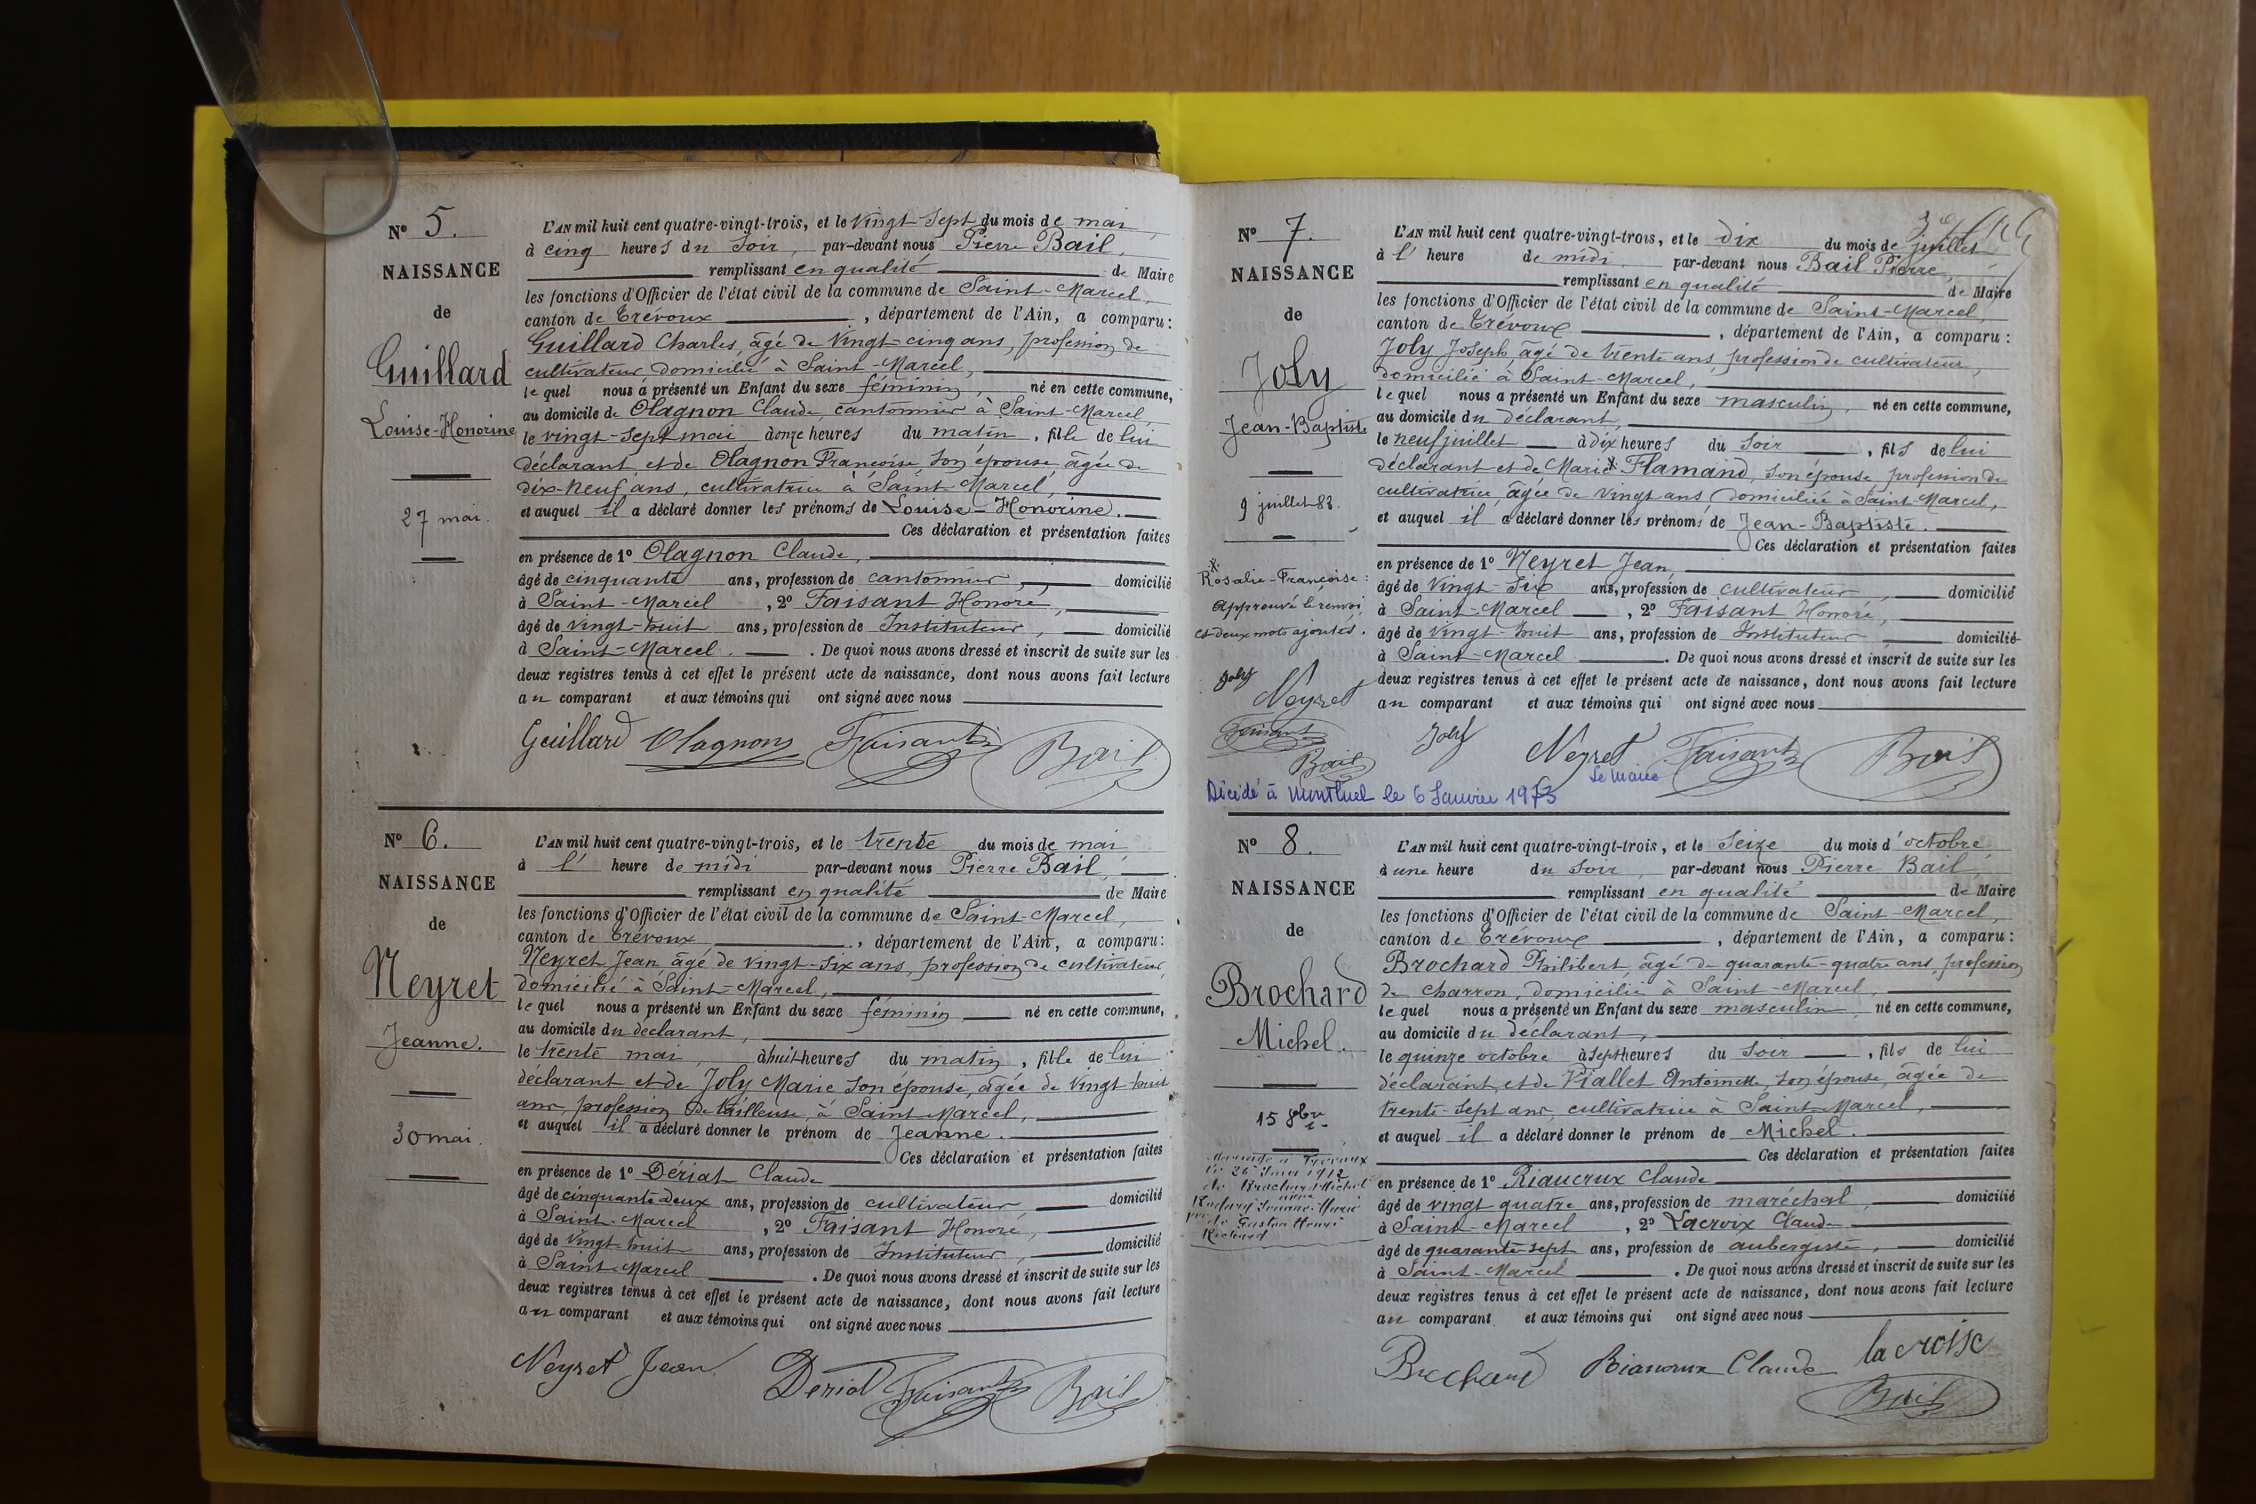 N° 5.
NAISSANCE
de
Guillard
Louise-Honorine
27 mai.
L'AN mil huit cent quatre-vingt-trois, et le vingt sept du mois de mai,
à cinq heures du soir, par-devant nous Pierre Bail,
remplissant en qualité de Maire
les fonctions d'Officier de l'état civil de la commune de Saint-Marcel,
canton de Trévoux, département de l'Ain, a comparu:
Guillard Charles, âgé de vingt-cinq ans, profession de
cultivateur, domicilié à Saint-Marcel,
lequel nous a présenté un Enfant du sexe féminin, né en cette commune,
au domicile de Olagnon Claude, cantonnier à Saint-Marcel
le vingt-sept mai à onze heures du matin, fille de lui
déclarant et de Olagnon Françoise, son épouse, âgée de
dix-neuf ans, cultivatrice à Saint Marcel,
et auquel il a déclaré donner les prénoms de Louise-Honorine.
Ces déclaration et présentation faites
en présence de 1° Olagnon Claude,
âgé de cinquante ans, profession de cantonnier, domicilié
à Saint-Marcel, 2° Faisant Honoré,
âgé de vingt-huit ans, profession de Instituteur, domicilié
à Saint-Marcel. De quoi nous avons dressé et inscrit de suite sur les
deux registres tenus à cet effet le présent acte de naissance, dont nous avons fait lecture
au comparant et aux témoins qui ont signé avec nous
Guillard Olagnon Faisant Bail
N° 6.
NAISSANCE
de
Neyret
Jeanne.
30 mai.
L'AN mil huit cent quatre-vingt-trois, et le trente du mois de mai
à l' heure de midi par-devant nous Pierre Bail,
remplissant en qualité de Maire
les fonctions d'Officier de l'état civil de la commune de Saint-Marcel,
canton de Trévoux, département de l'Ain, a comparu:
Neyret Jean âgé de vingt-six ans, profession de cultivateur,
domicilié à Saint-Marcel,
lequel nous a présenté un Enfant du sexe féminin né en cette commune,
au domicile du déclarant,
le trente mai, à huit heures du matin, fille de lui
déclarant et de Joly Marie son épouse, âgée de vingt huit
ans, profession de tailleuse, à Saint Marcel,
et auquel il a déclaré donner le prénom de Jeanne.
Ces déclaration et présentation faites
en présence de 1° Dériat Claude
âgé de cinquante deux ans, profession de cultivateur, domicilié
à Saint-Marcel, 2° Faisant Honoré,
âgé de vingt huit ans, profession de Instituteur, domicilié
à Saint-Marcel. De quoi nous avons dressé et inscrit de suite sur les
deux registres tenus à cet effet le présent acte de naissance, dont nous avons fait lecture
au comparant et aux témoins qui ont signé avec nous
Neyret Jean Dériat Faisant Bail
N° 7.
NAISSANCE
de
Joly
Jean-Baptiste
9 juillet 83.
x Rosalie-Françoise:
Approuvé le renvoi
et deux mots ajoutés.
Joly
Neyret
Faisant
Bail
L'AN mil huit cent quatre-vingt-trois, et le dix du mois de juillet
à l' heure de midi par-devant nous Bail Pierre,
remplissant en qualité de Maire
les fonctions d'Officier de l'état civil de la commune de Saint-Marcel,
canton de Trévoux, département de l'Ain, a comparu:
Joly Joseph âgé de trente ans, profession de cultivateur,
domicilié à Saint-Marcel,
lequel nous a présenté un Enfant du sexe masculin, né en cette commune,
au domicile du déclarant,
le neuf juillet à dix heures du soir, fils de lui
déclarant et de Marie x Flamand, son épouse, profession de
cultivatrice, âgée de vingt ans, domiciliée à Saint-Marcel,
et auquel il a déclaré donner les prénoms de Jean-Baptiste.
Ces déclaration et présentation faites
en présence de 1° Neyret Jean
âgé de vingt-six ans, profession de cultivateur, domicilié
à Saint-Marcel, 2° Faisant Honoré,
âgé de vingt-huit ans, profession de Instituteur domicilié
à Saint-Marcel. De quoi nous avons dressé et inscrit de suite sur les
deux registres tenus à cet effet le présent acte de naissance, dont nous avons fait lecture
au comparant et aux témoins qui ont signé avec nous
Joly Neyret Faisant Bail
Le Maire
Décédé à Montluel le 6 Janvier 1973
N° 8.
NAISSANCE
de
Brochard
Michel.
15 8bre
L'AN mil huit cent quatre-vingt-trois, et le seize du mois d'octobre
à une heure du soir, par-devant nous Pierre Bail,
remplissant en qualité de Maire
les fonctions d'Officier de l'état civil de la commune de Saint-Marcel,
canton de Trévoux, département de l'Ain, a comparu:
Brochard Philibert, âgé de quarante-quatre ans, profession
de charron, domicilié à Saint-Marcel,
lequel nous a présenté un Enfant du sexe masculin, né en cette commune,
au domicile du déclarant,
le quinze octobre à sept heures du soir, fils de lui
déclarant, et de Viallet Antoinette, son épouse, âgée de
trente-sept ans, cultivatrice à Saint-Marcel,
et auquel il a déclaré donner le prénom de Michel.
Ces déclaration et présentation faites
en présence de 1° Riaucrux Claude
âgé de vingt quatre ans, profession de maréchal, domicilié
à Saint-Marcel, 2° Lacroix Claude
âgé de quarante-sept ans, profession de aubergiste, domicilié
à Saint-Marcel. De quoi nous avons dressé et inscrit de suite sur les
deux registres tenus à cet effet le présent acte de naissance, dont nous avons fait lecture
au comparant et aux témoins qui ont signé avec nous
Brochard Riaucrux Claude lacroix
Bail